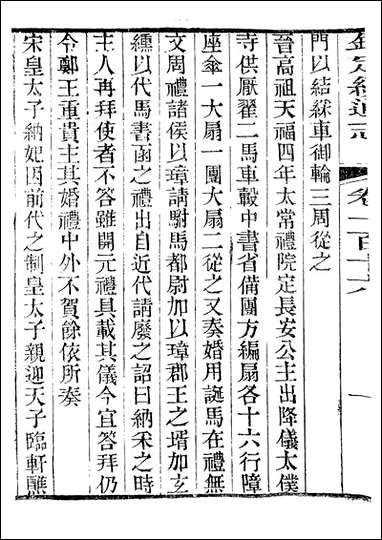 欽定續通志
卷一百十六
一
門以結綵車御輪三周從之
晉高祖天福四年太常禮院定長安公主出降儀太僕
寺供厭翟二馬車轂中書省備團方編扇各十六行障
座傘一大扇一團大扇二從之又奏婚用誕馬在禮無
文周禮諸侯以璋請駙馬都尉加以璋郡王之壻加玄
纁以代馬書函之禮出自近代請廢之詔曰納釆之時
主人再拜使者不答雖開元禮具載其儀今宜答拜仍
令鄭王重貴主其婚禮中外不賀餘依所奏
宋皇太子納妃因前代之制皇太子親迎天子臨軒醮